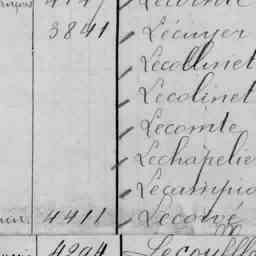 3841 Lécuyer
Lecollinet
Lecolinet
Lecomte
Lechapelie
Lecampio
4411 Lecouvé
4294